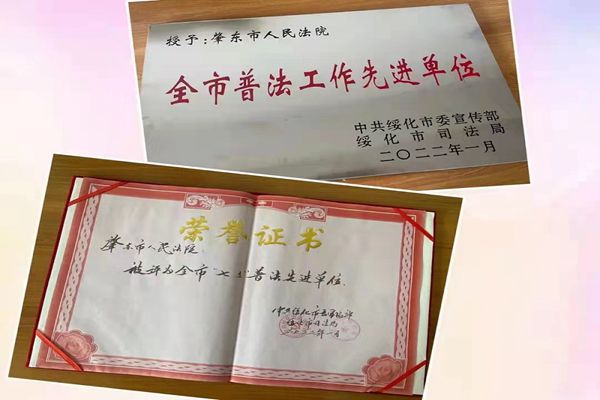 授予：肇东市人民法院
全市普法工作先进单位
中共绥化市委宣传部
绥化市司法局
二〇二二年一月
荣誉证书
肇东市人民法院
被评为全市"七五"普法先进单位
中共绥化市委宣传部
绥化市司法局
二〇二二年一月